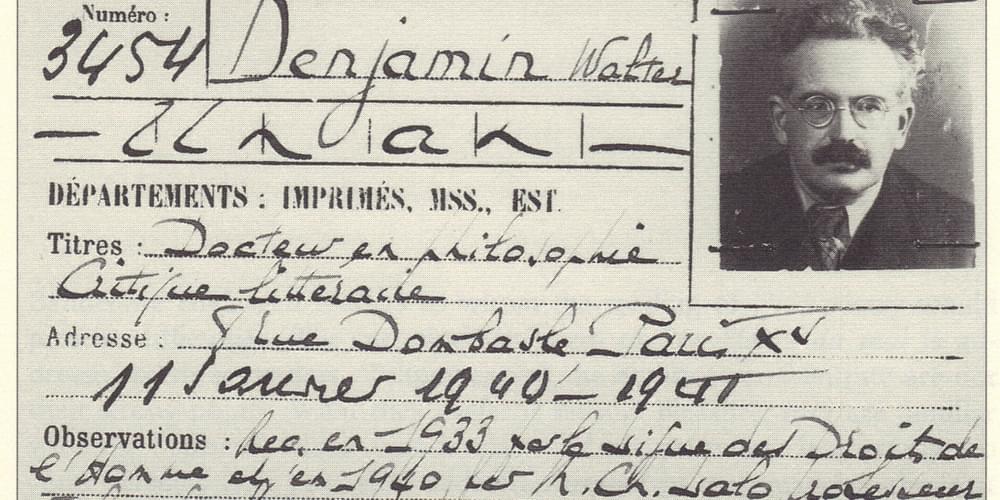 Numéro :
3454
Benjamin Walter
DÉPARTEMENTS : IMPRIMÉS, MSS., EST.
Titres : Docteur en philosophie
Critique littéraire
Adresse : rue Dombasle Paris XV
11 Janvier 1940 – 1941
Observations : Rec. en 1933 par la Ligue des Droits de
l'Homme et en 1940 par M. Ch. Lalo professeur